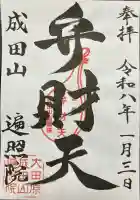 奉拝 令和八年一月三日
弁財天
成田山 遍照院